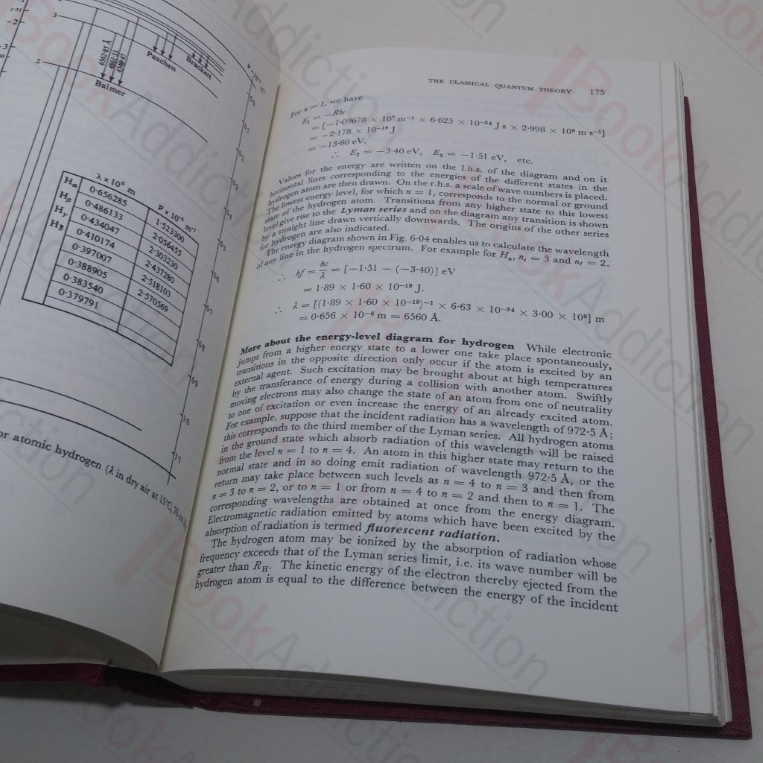 3
2
6561·13
4861·33
4340·47
Balmer
Paschen
Brackett
λ × 10⁶ m
ν × 10⁻⁶ m⁻¹
Hα 0·656285 1·523300
Hβ 0·486133 2·056455
Hγ 0·434047 2·303230
Hδ 0·410174 2·437280
0·397007 2·518103
0·388905 2·570569
0·383540
0·379791
or atomic hydrogen (λ in dry air at 15°C,
THE CLASSICAL QUANTUM THEORY 175
For n = 1, we have
E₁ = −Rhc
= [−1·09678 × 10⁷ m⁻¹ × 6·625 × 10⁻³⁴ J s × 2·998 × 10⁸ m s⁻¹]
= −2·178 × 10⁻¹⁸ J
= −13·60 eV.
∴ E₂ = −3·40 eV, E₃ = −1·51 eV, etc.
Values for the energy are written on the l.h.s. of the diagram and on it
horizontal lines corresponding to the energies of the different states in the
hydrogen atom are then drawn. On the r.h.s. a scale of wave numbers is placed.
The lowest energy level, for which n = 1, corresponds to the normal or ground
state of the hydrogen atom. Transitions from any higher state to this lowest
level give rise to the Lyman series and on the diagram any transition is shown
by a straight line drawn vertically downwards. The origins of the other series
for hydrogen are also indicated.
The energy diagram shown in Fig. 6·04 enables us to calculate the wavelength
of any line in the hydrogen spectrum. For example for Hα, nᵢ = 3 and n_f = 2.
∴ hf = hc/λ = [−1·51 − (−3·40)] eV
= 1·89 × 1·60 × 10⁻¹⁹ J.
∴ λ = [(1·89 × 1·60 × 10⁻¹⁹)⁻¹ × 6·63 × 10⁻³⁴ × 3·00 × 10⁸] m
= 0·656 × 10⁻⁶ m = 6560 Å.
More about the energy-level diagram for hydrogen While electronic
jumps from a higher energy state to a lower one take place spontaneously,
transitions in the opposite direction only occur if the atom is excited by an
external agent. Such excitation may be brought about at high temperatures
by the transferance of energy during a collision with another atom. Swiftly
moving electrons may also change the state of an atom from one of neutrality
to one of excitation or even increase the energy of an already excited atom.
For example, suppose that the incident radiation has a wavelength of 972·5 Å;
this corresponds to the third member of the Lyman series. All hydrogen atoms
in the ground state which absorb radiation of this wavelength will be raised
from the level n = 1 to n = 4. An atom in this higher state may return to the
normal state and in so doing emit radiation of wavelength 972·5 Å, or the
return may take place between such levels as n = 4 to n = 3 and then from
n = 3 to n = 2, or to n = 1 or from n = 4 to n = 2 and then to n = 1. The
corresponding wavelengths are obtained at once from the energy diagram.
Electromagnetic radiation emitted by atoms which have been excited by the
absorption of radiation is termed fluorescent radiation.
The hydrogen atom may be ionized by the absorption of radiation whose
frequency exceeds that of the Lyman series limit, i.e. its wave number will be
greater than R_H. The kinetic energy of the electron thereby ejected from the
hydrogen atom is equal to the difference between the energy of the incident
BookAddiction